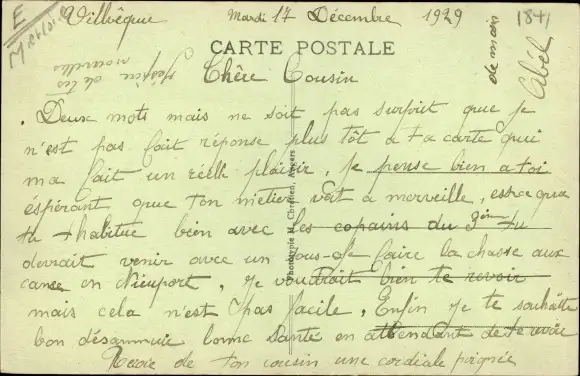 E
Villvêque Mardi 17 Décembre 1929
1841
CARTE POSTALE
J'espère de tes nouvelles
Chère Cousin
. Deux mots mais ne soit pas surprit que je
n'est pas fait réponse plus tôt a ta carte qui
ma fait un réelle plaisir, Je pense bien a toi
éspérant que ton métier vat a merveille, esxe que
tu t'habitue bien avec les copains du 3èm tu
devrait venir avec un sous-de faire la chasse aux
canse en Nieuport, Je voudrait bien te revoir
mais cela n'est pas facile, Enfin Je te souhaite
bon désannuie bonne Santé en attendant de te revoir
Recoie de ton cousin une cordiale poignée
de main
Abél
Phototypie M. Chrétien, Angers